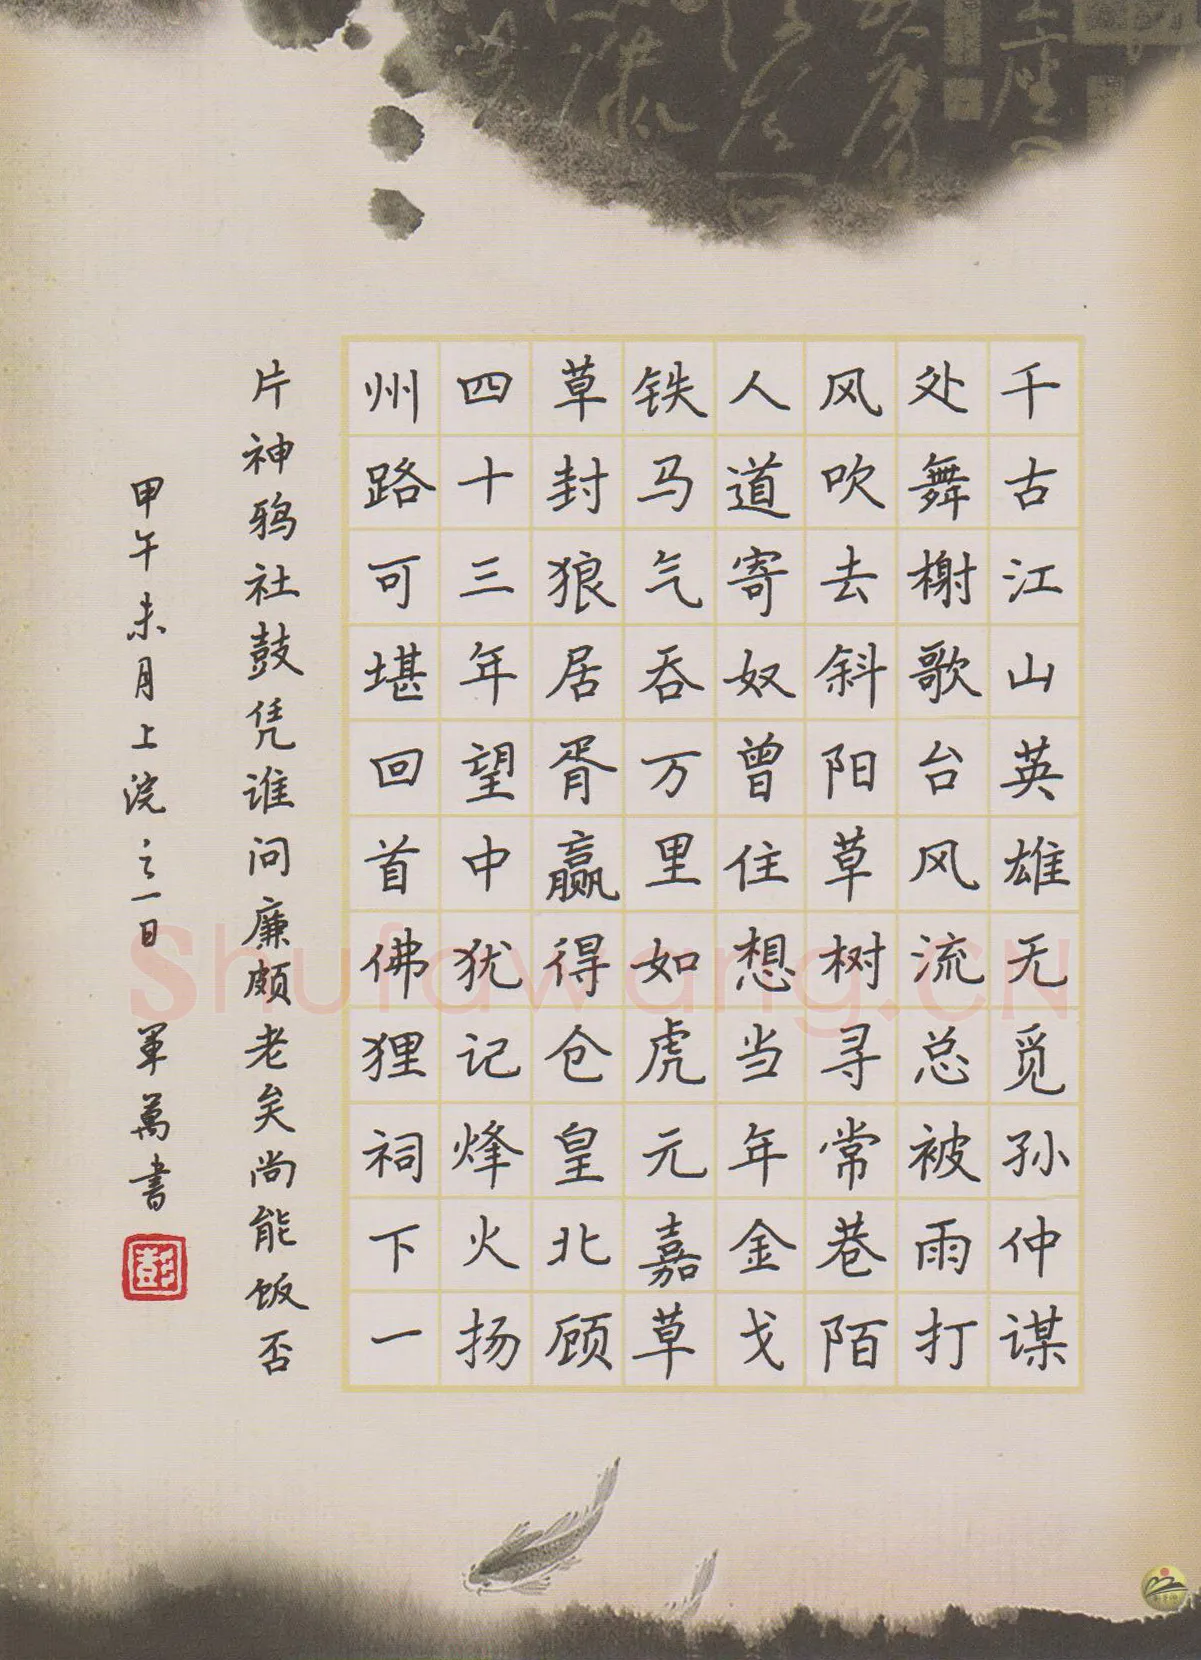 千古江山英雄无觅孙仲谋
处舞榭歌台风流总被雨打
风吹去斜阳草树寻常巷陌
人道寄奴曾住想当年金戈
铁马气吞万里如虎元嘉草
草封狼居胥赢得仓皇北顾
四十三年望中犹记烽火扬
州路可堪回首佛狸祠下一
片神鸦社鼓凭谁问廉颇老矣尚能饭否
甲午未月上浣之一日 军萬書
彭
Shufawang.CN